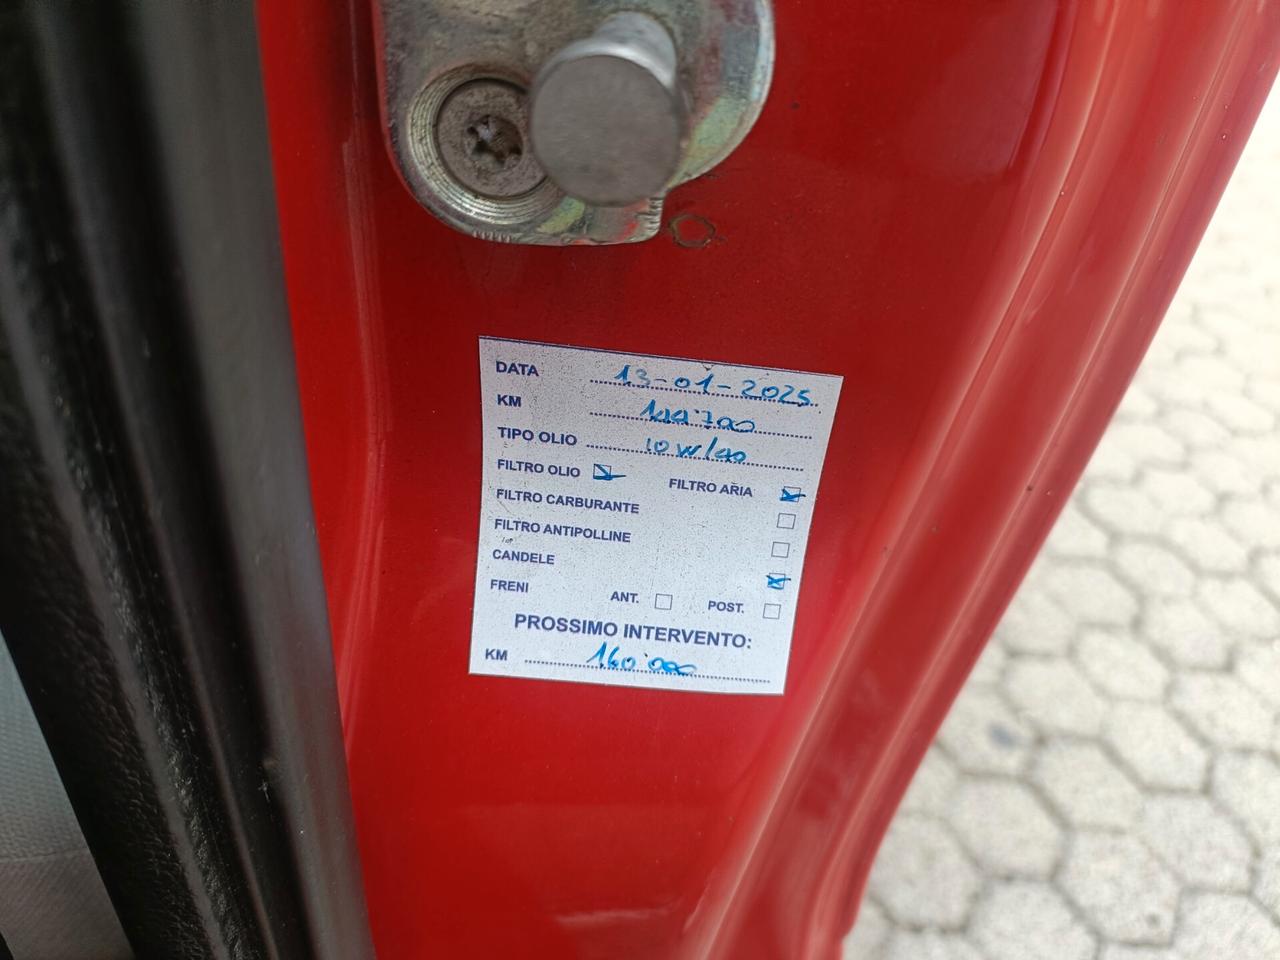 DATA 13-01-2025
KM 144'700
TIPO OLIO 10W/40
FILTRO OLIO FILTRO ARIA
FILTRO CARBURANTE
FILTRO ANTIPOLLINE
CANDELE
FRENI ANT. POST.
PROSSIMO INTERVENTO:
KM 160'000